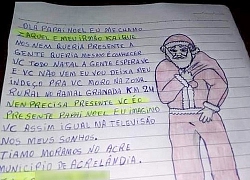 OLA PAPAI NOEL EU ME CHAMO
ZAQUEL E MEU IRMÃO KAIQUE
NOS NEM QUERIA PRESENTE A
GENTE QUERIA MESMO CONHECER
VC TODO NATAL A GENTE ESPERA VC
E VC NÃO VEM EU VOU DEIXA MEU
INDEÇO PRA VC MORO NA ZONA
RURAL NO RAMAL GRANADA KM 24
NEN PRECISA PRESENTE VC EO
PRESENTE PAPAI NOEL EU IMAGINO
VC ASSIM IGUAL NA TELEVISÃO
NOS MEUS SONHOS.
TIAMO MORAMOS NO ACRE
MUNICIPIO DE ACRELÂNDIA.